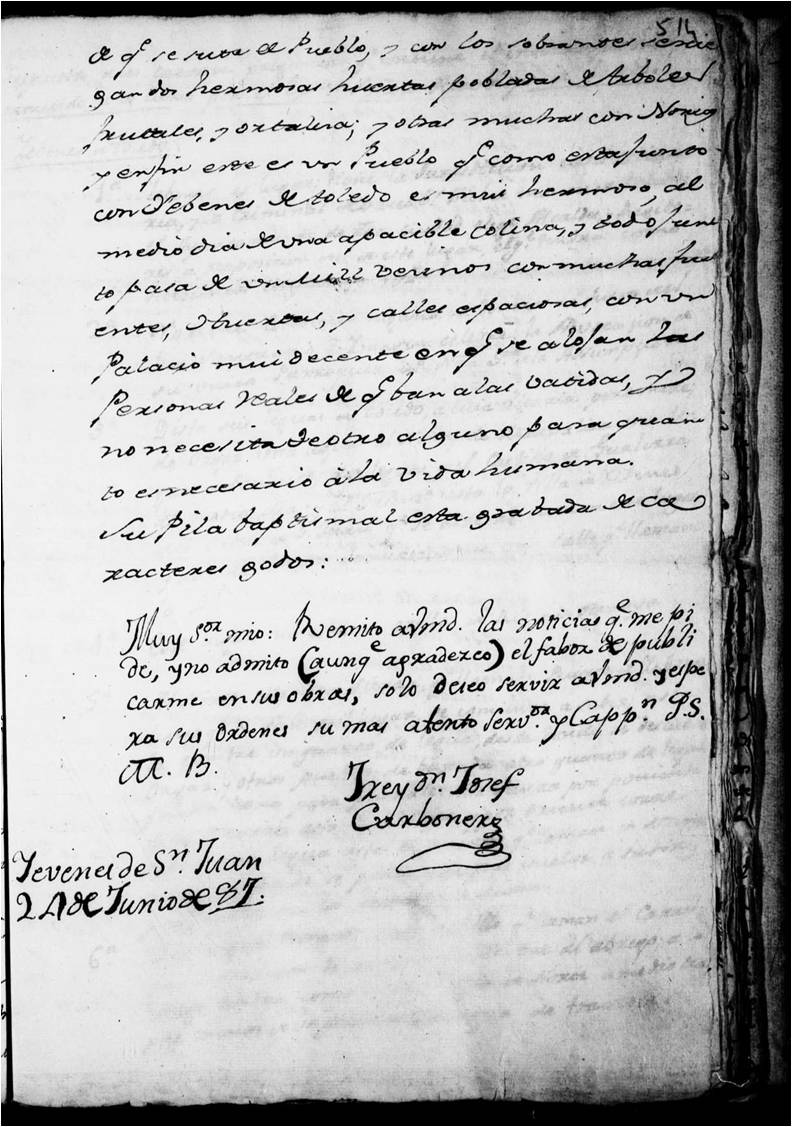 514
de q.e se surte el Pueblo, y con los sobrantes se rie
gan dos hermosas huertas pobladas de Arboles
frutales, y ortaliza; y otras muchas con Noria
y en fin este es un Pueblo q.e como esta junto
con Yebenes de toledo es mui hermoso, al
medio dia de una apacible colina, y todo jun
to pasa de un mill vecinos con muchas fu
entes, Huertas, y calles espaciosas, con un
Palacio mui decente en q.e se alojan las
Personas Reales de q.e ban a las vatidas, y
no necesita de otro alguno para quan
to es necesario à la vida humana.
Su Pila baptismal esta grabada de ca
racteres godos:
Muy S.or mio: Remito a Vmd. las noticias q.e me pi
de, y no admito (aunq.e agradezco) el fabor de publi
carme en sus obras, solo deseo servir a Vmd. y espe
ra sus ordenes su mas atento serv.or y Capp.n Q.S.
M. B.
Frey d.n Josef
Carbonero
Yevenes de S.n Juan
24 de Junio de 87.
6a